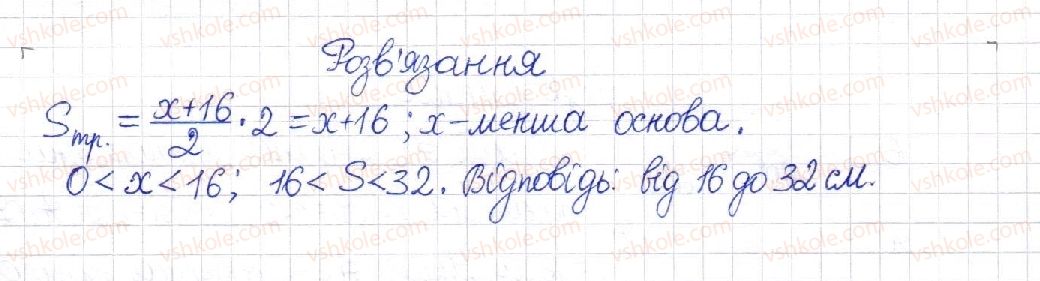 Розв'язання
Sтр. = x+16/2 · 2 = x+16; x-менша основа.
0 < x < 16; 16 < S < 32. Відповідь: від 16 до 32 см.